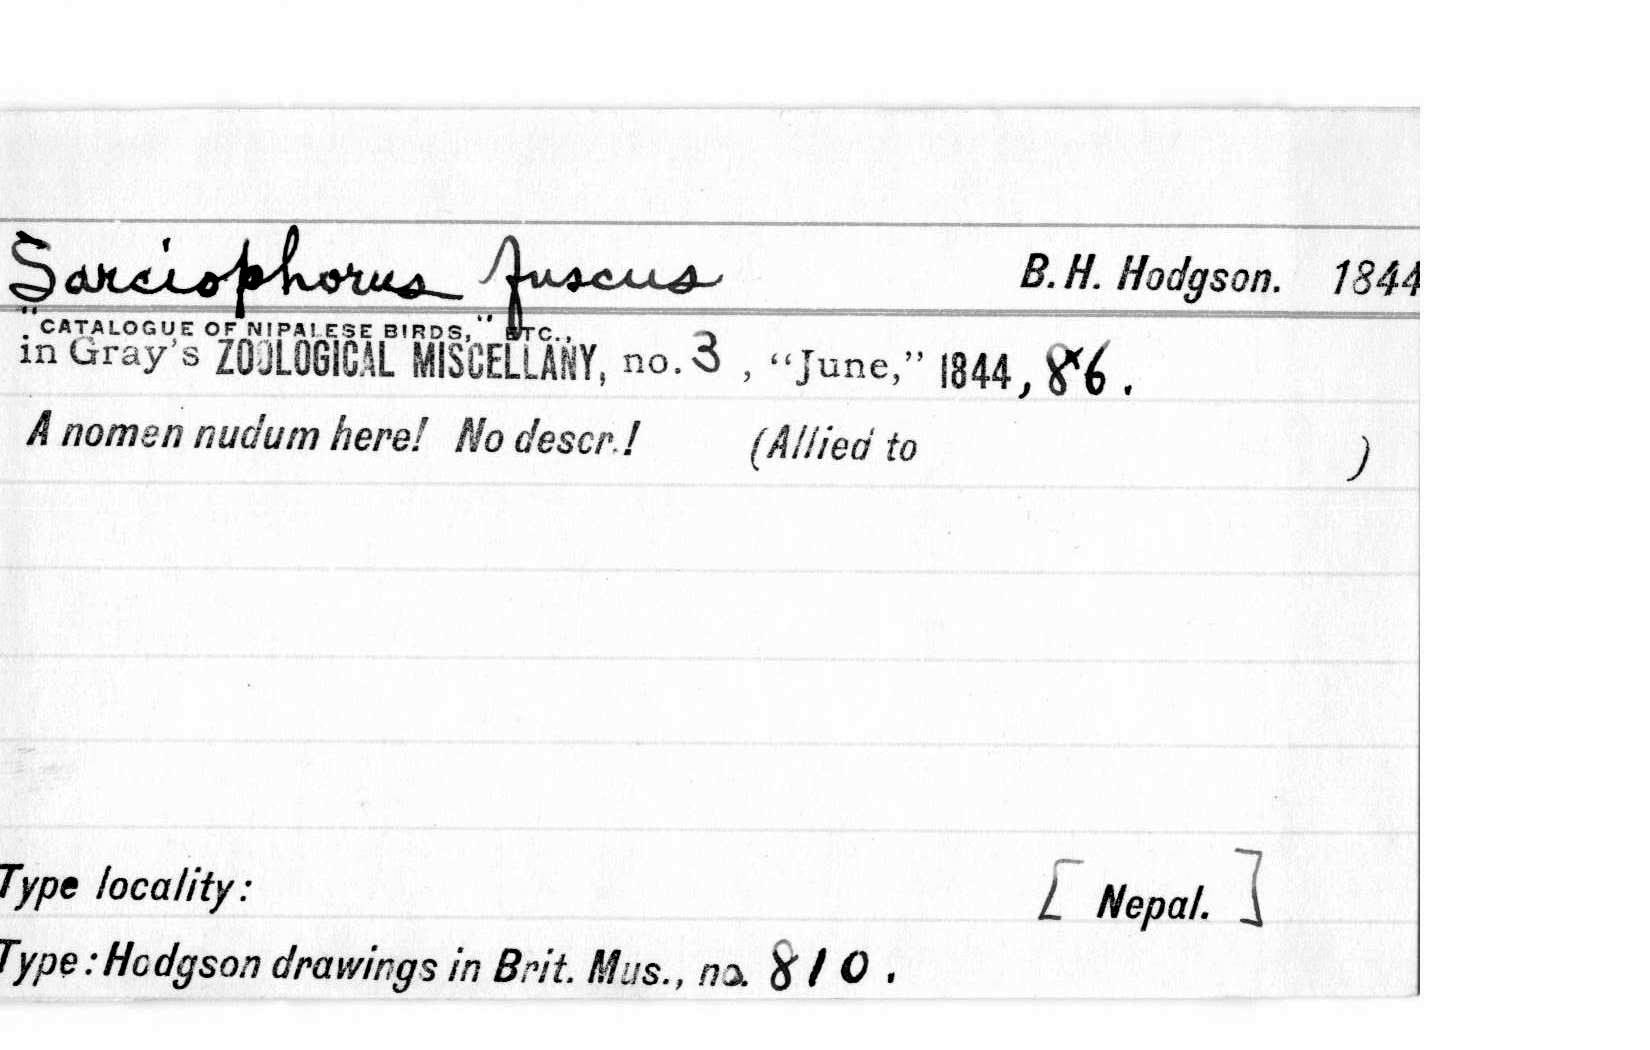 Sarciophorus fuscus B. H. Hodgson. 1844
"CATALOGUE OF NIPALESE BIRDS," ETC.,
in Gray's ZOOLOGICAL MISCELLANY, no. 3, "June," 1844, 86.
A nomen nudum here! No descr.! (Allied to )
Type locality: [Nepal.]
Type: Hodgson drawings in Brit. Mus., no. 810.